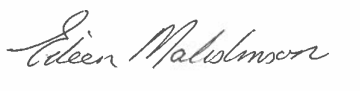 Eileen Malcolmson